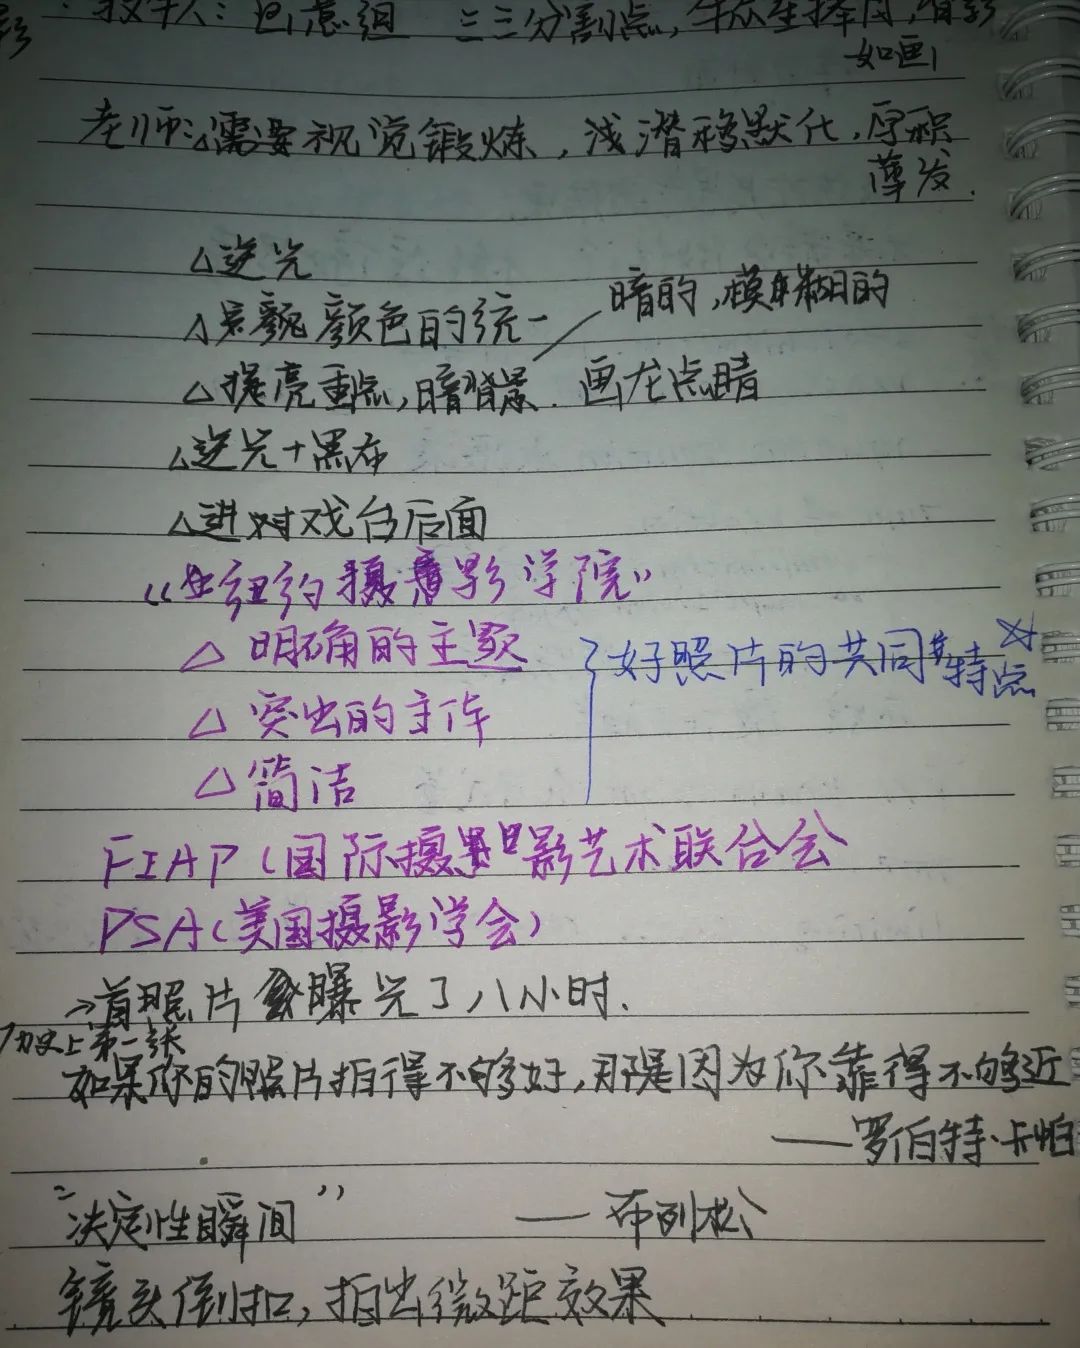 三三分割点,
如画
老师:需要视觉锻炼,浅潜移默化,厚积
薄发.
△逆光
△颜色的统一
暗的,模糊的
△提亮重点,暗背景. 画龙点睛
△逆光+黑布
△进对戏台后面
“纽约摄影学院”
△ 明确的主题
好照片的共同特点
△ 突出的主体
△ 简洁
FIAP(国际摄影艺术联合会
PSA(美国摄影学会)
→首照片曝光了八小时.
历史上第一张
如果你的照片拍得不够好,那是因为你靠得不够近
——罗伯特·卡帕
“决定性瞬间” ——布列松
镜头倒扣,拍出微距效果